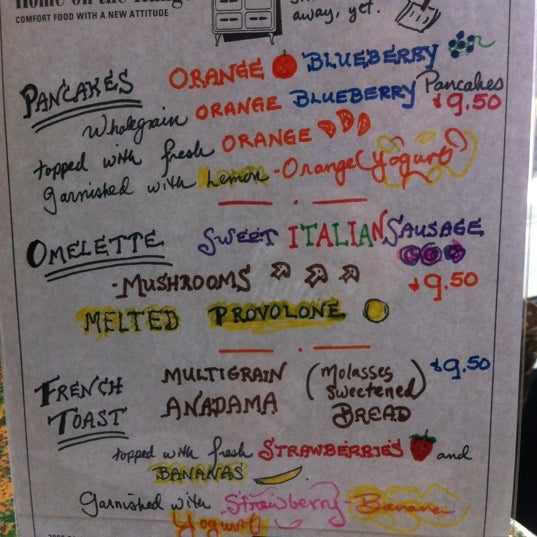 COMFORT FOOD WITH A NEW ATTITUDE
away, yet.
PANCAKES
ORANGE BLUEBERRY
Wholegrain ORANGE BLUEBERRY Pancakes
$9.50
topped with fresh ORANGE
garnished with Lemon-Orange Yogurt
OMELETTE
SWEET ITALIAN SAUSAGE
-MUSHROOMS
$9.50
MELTED PROVOLONE
FRENCH TOAST
MULTIGRAIN (Molasses sweetened) $9.50
ANADAMA BREAD
topped with fresh STRAWBERRIES and
BANANAS
Garnished with Strawberry-Banana
Yogurt